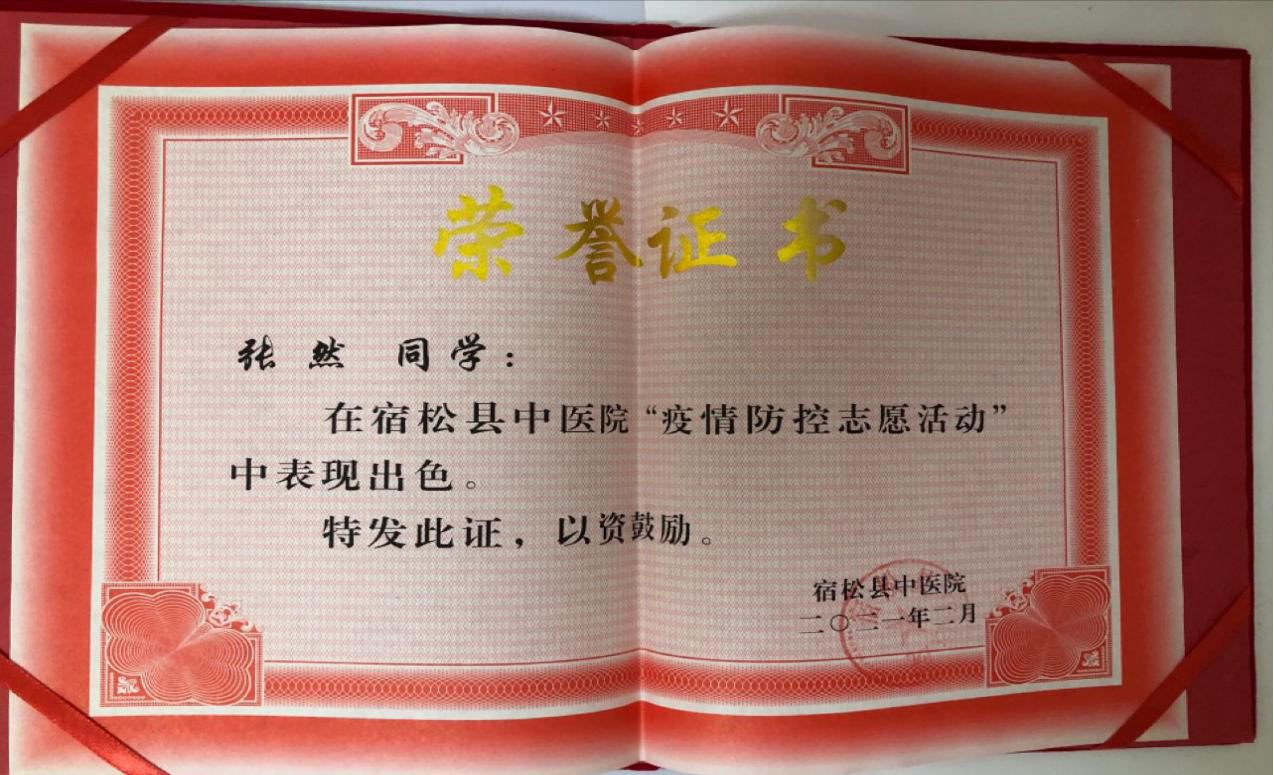 荣誉证书
张然 同学：
在宿松县中医院“疫情防控志愿活动”
中表现出色。
特发此证，以资鼓励。
宿松县中医院
二〇二一年二月